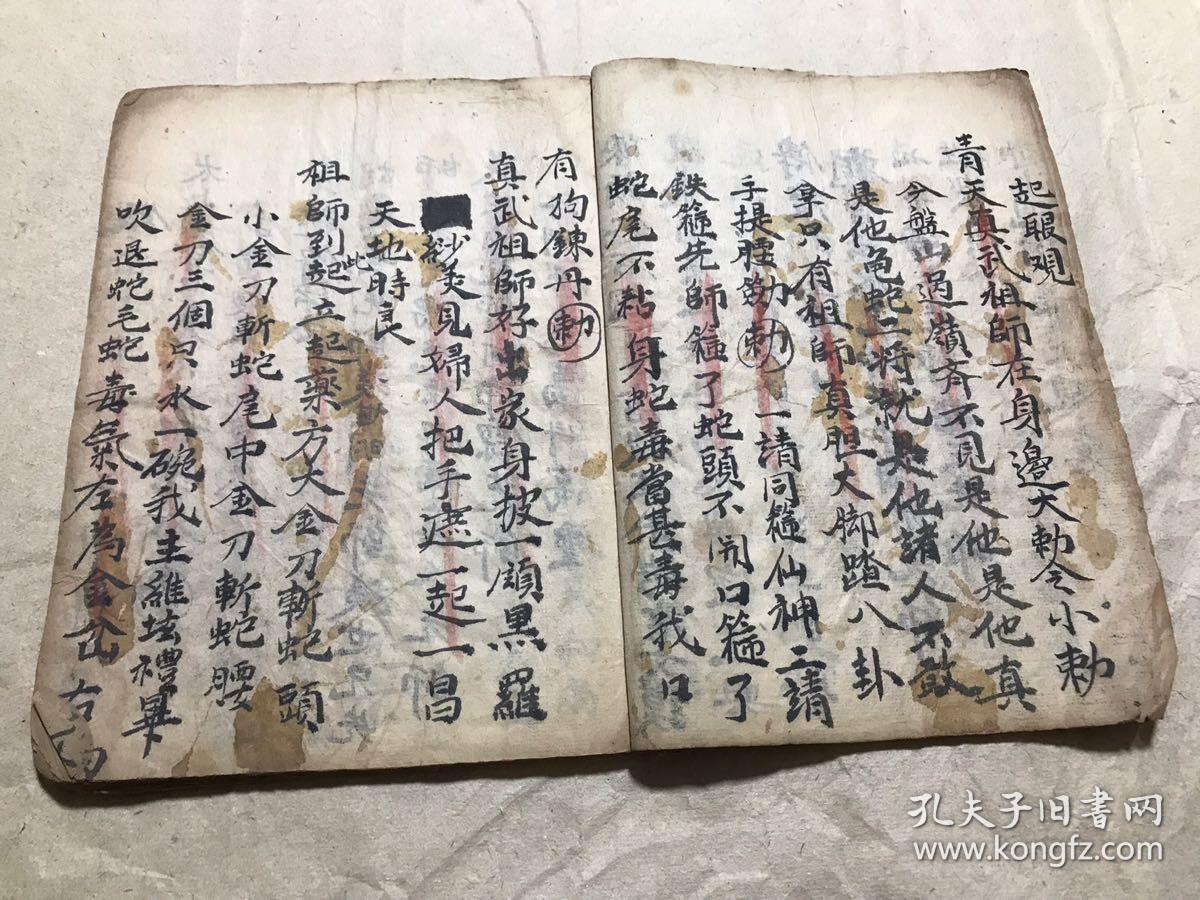 起眼观
青天真武祖師在身邊大勅令小勅
令盤山过嶺斉不見是他是他真
是他龟蛇二将就是他諸人不敢
拿只有祖師真胆大脚踏八卦
手提腰勅勅一請同箍仙神二請
鉄箍先師箍了蛇頭不開口箍了
蛇尾不粘身蛇毒當甚毒我口
有狗鍊丹勅
真武祖師好出家身披一頂黒羅
紗美見婦人把手遮一起一昌
天地時良
祖師到此起立起藥方大金刀斬蛇頭
小金刀斬蛇尾中金刀斬蛇腰
金刀三個只水一碗我主維坛禮畢
吹退蛇毛蛇毒氣左為金岔右
孔夫子旧书网
www.kongfz.com